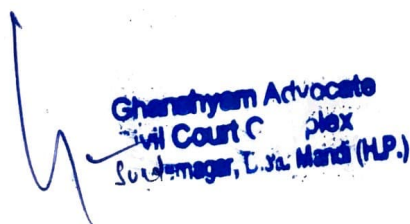 Ghanshyam Advocate
Civil Court C plex
Sundernagar, Distt. Mandi (H.P.)